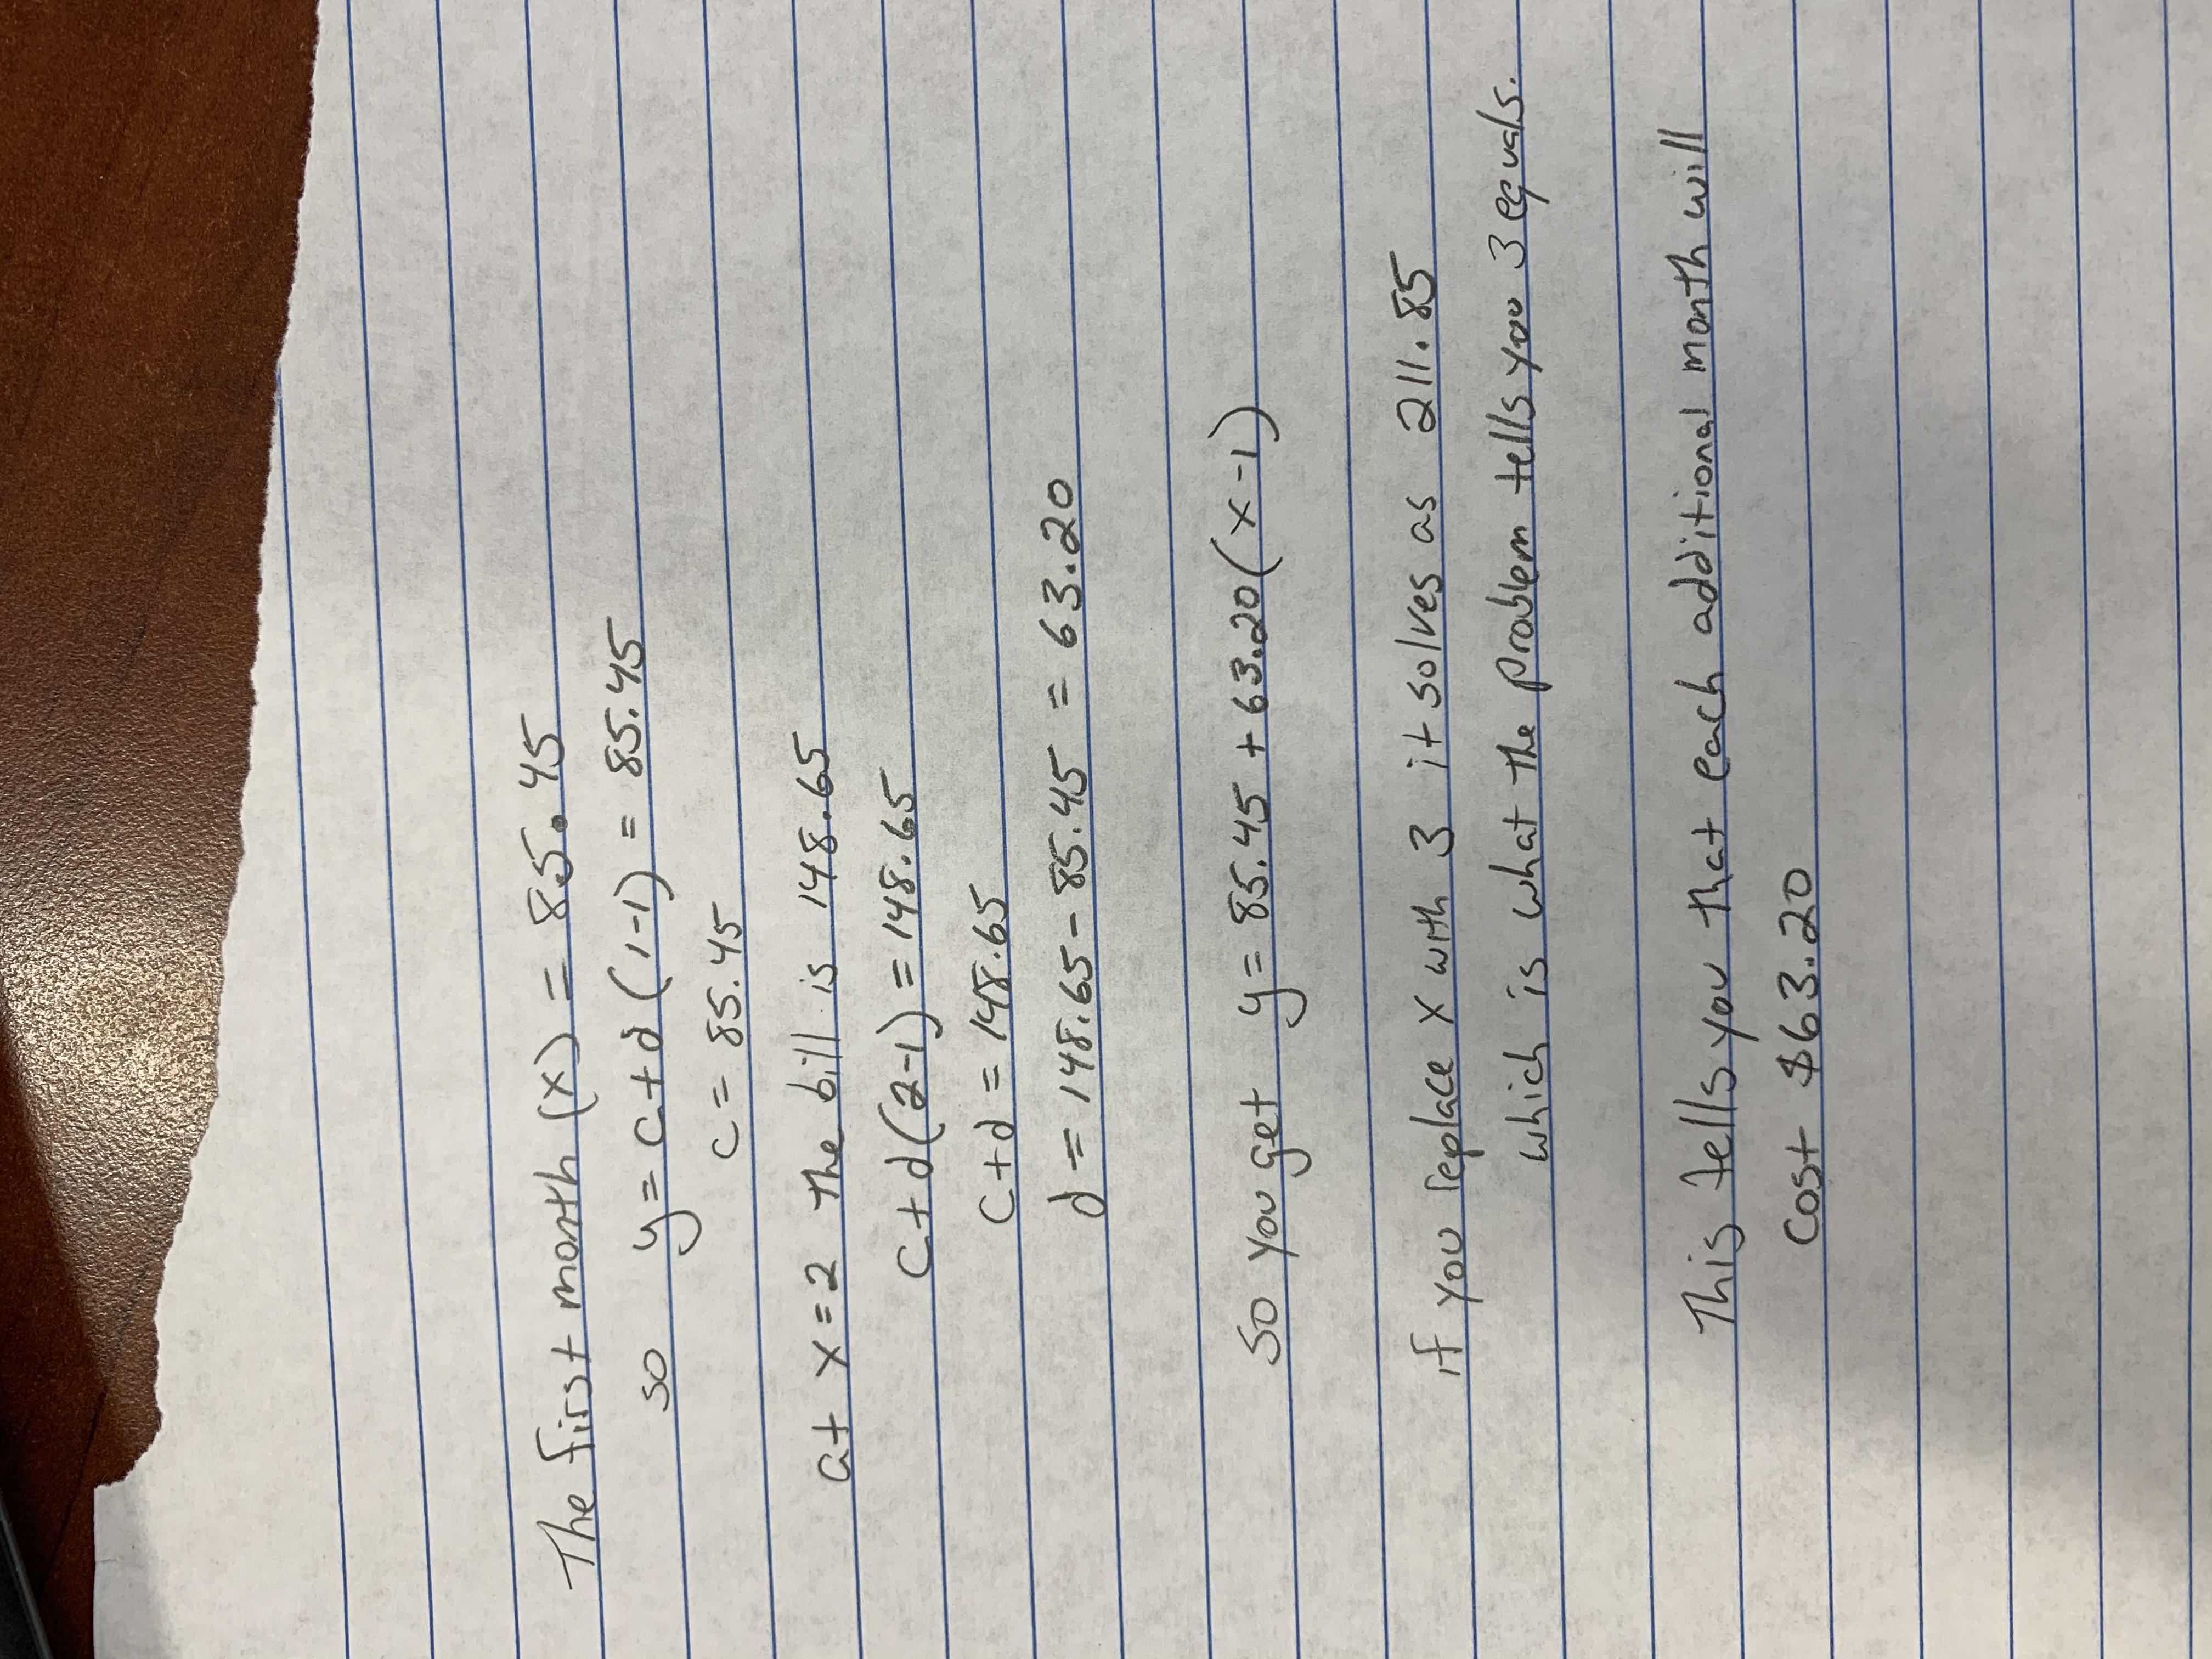 The first month (x) = 85.45
so y = c + d (1-1) = 85.45
c = 85.45
at x = 2 the bill is 148.65
c + d (2-1) = 148.65
c + d = 148.65
d = 148.65 - 85.45 = 63.20
So you get y = 85.45 + 63.20 (x-1)
if you replace x with 3 it solves as 211.85
which is what the problem tells you 3 equals.
This tells you that each additional month will
cost $63.20